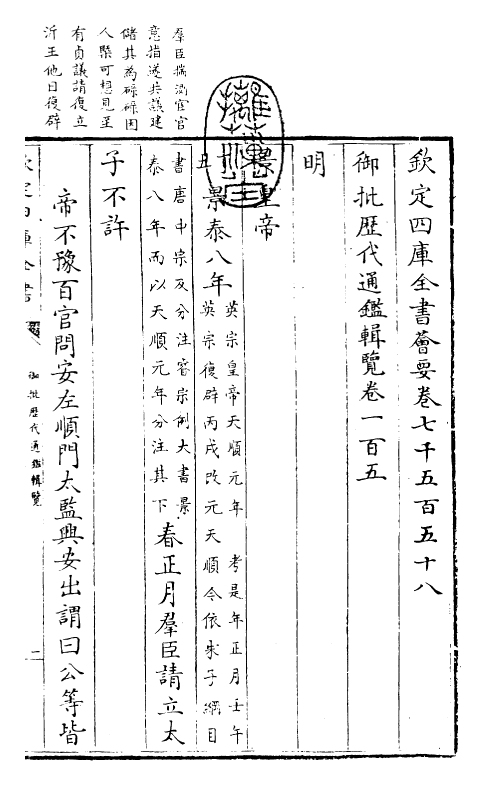 欽定四庫全書薈要卷七千五百五十八
御批歷代通鑑輯覽卷一百五
明
景皇帝
丑景泰八年英宗皇帝天順元年　考是年正月壬午
英宗復辟丙戌改元天順今依朱子綱目
書唐中宗及分注睿宗例大書景
泰八年而以天順元年分注其下春正月羣臣請立太
子不許
帝不豫百官問安左順門太監興安出謂曰公等皆
羣臣揣測宦官
意指遂共議建
儲其為碌碌因
人槩可想見至
有貞議請復立
沂王他日復辟
欽定四庫全書
御批歷代通鑑輯覽
一